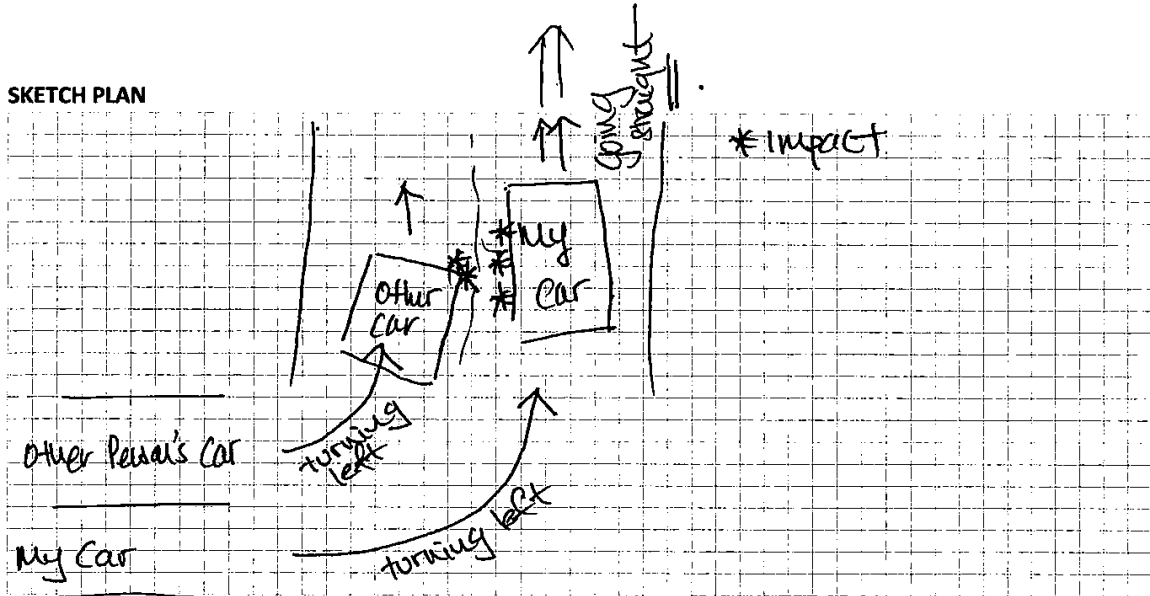 SKETCH PLAN
going
straight
* Impact
My
Car
Other
Car
Other Person's Car
turning
left
My Car
turning left